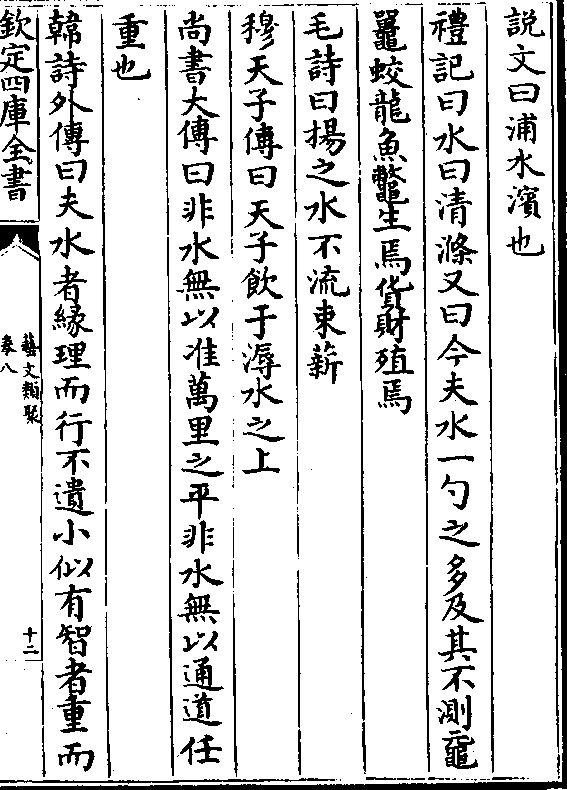 説文曰浦水濱也
禮記曰水曰清滌又曰今夫水一勺之多及其不測黿
鼉蛟龍魚鼈生焉貨財殖焉
毛詩曰揚之水不流束薪
穆天子傳曰天子飲于溽水之上
尚書大傳曰非水無以准萬里之平非水無以通道任
重也
韓詩外傳曰夫水者緣理而行不遺小似有智者重而
欽定四庫全書
藝文類聚
卷八
十二